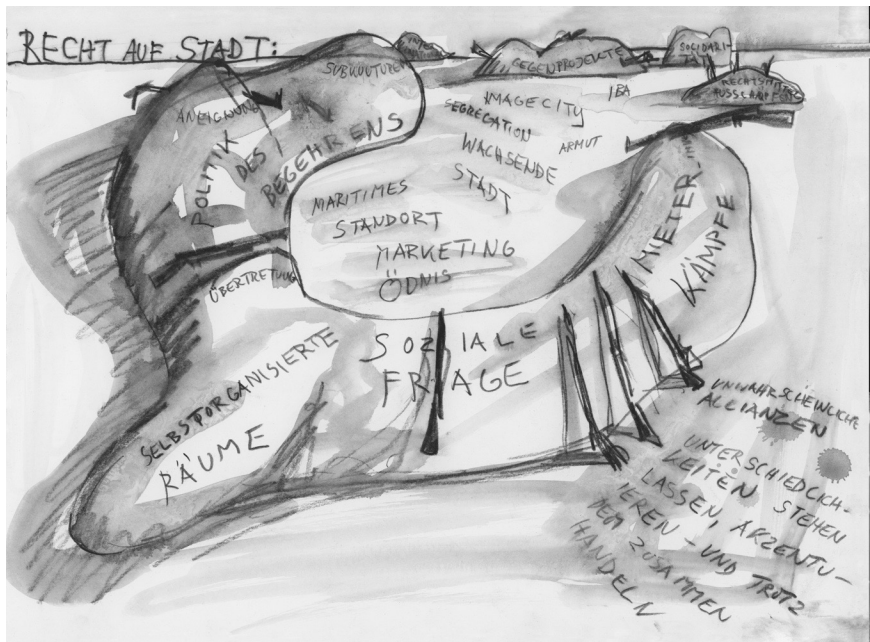 RECHT AUF STADT:
SUBKULTUREN
GEGENPROJEKTE
SOLIDARI-
TÄT
ANEIGNUNG
POLITIK
DES
BEGEHRENS
IMAGECITY
IBA
SEGREGATION
ARMUT
WACHSENDE
STADT
MARITIMES
STANDORT
MARKETING
ÖDNIS
MIETER-
KÄMPFE
ÜBERTRETUNG
SOZIALE
FRAGE
SELBSTORGANISIERTE
RÄUME
UNWAHRSCHEINLICHE
ALLIANZEN
UNTERSCHIEDLICH-
KEITEN STEHEN
LASSEN, AKZENTU-
IEREN - UND TROTZ
DEM ZUSAMMEN
HANDELN